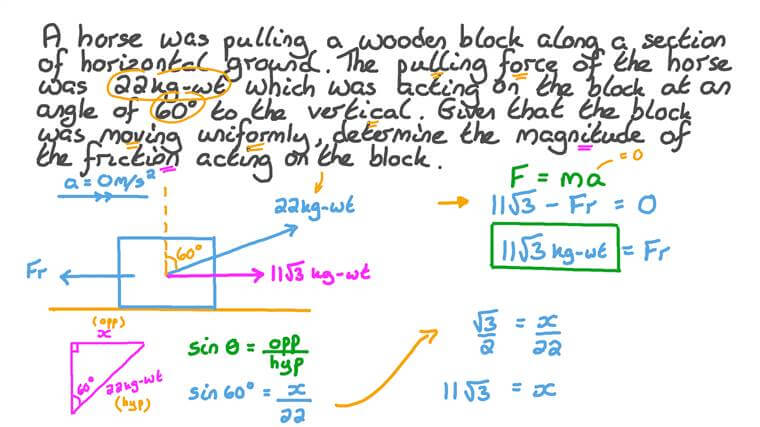 A horse was pulling a wooden block along a section
of horizontal ground. The pulling force of the horse
was 22kg-wt which was acting on the block at an
angle of 60° to the vertical. Given that the block
was moving uniformly, determine the magnitude of
the friction acting on the block.
a = 0m/s²
22kg-wt
60°
Fr
11√3 kg-wt
(opp)
x
60°
22kg-wt
(hyp)
sin θ = opp/hyp
sin 60° = x/22
= 0
F = ma
11√3 - Fr = 0
11√3 kg-wt = Fr
√3/2 = x/22
11√3 = x